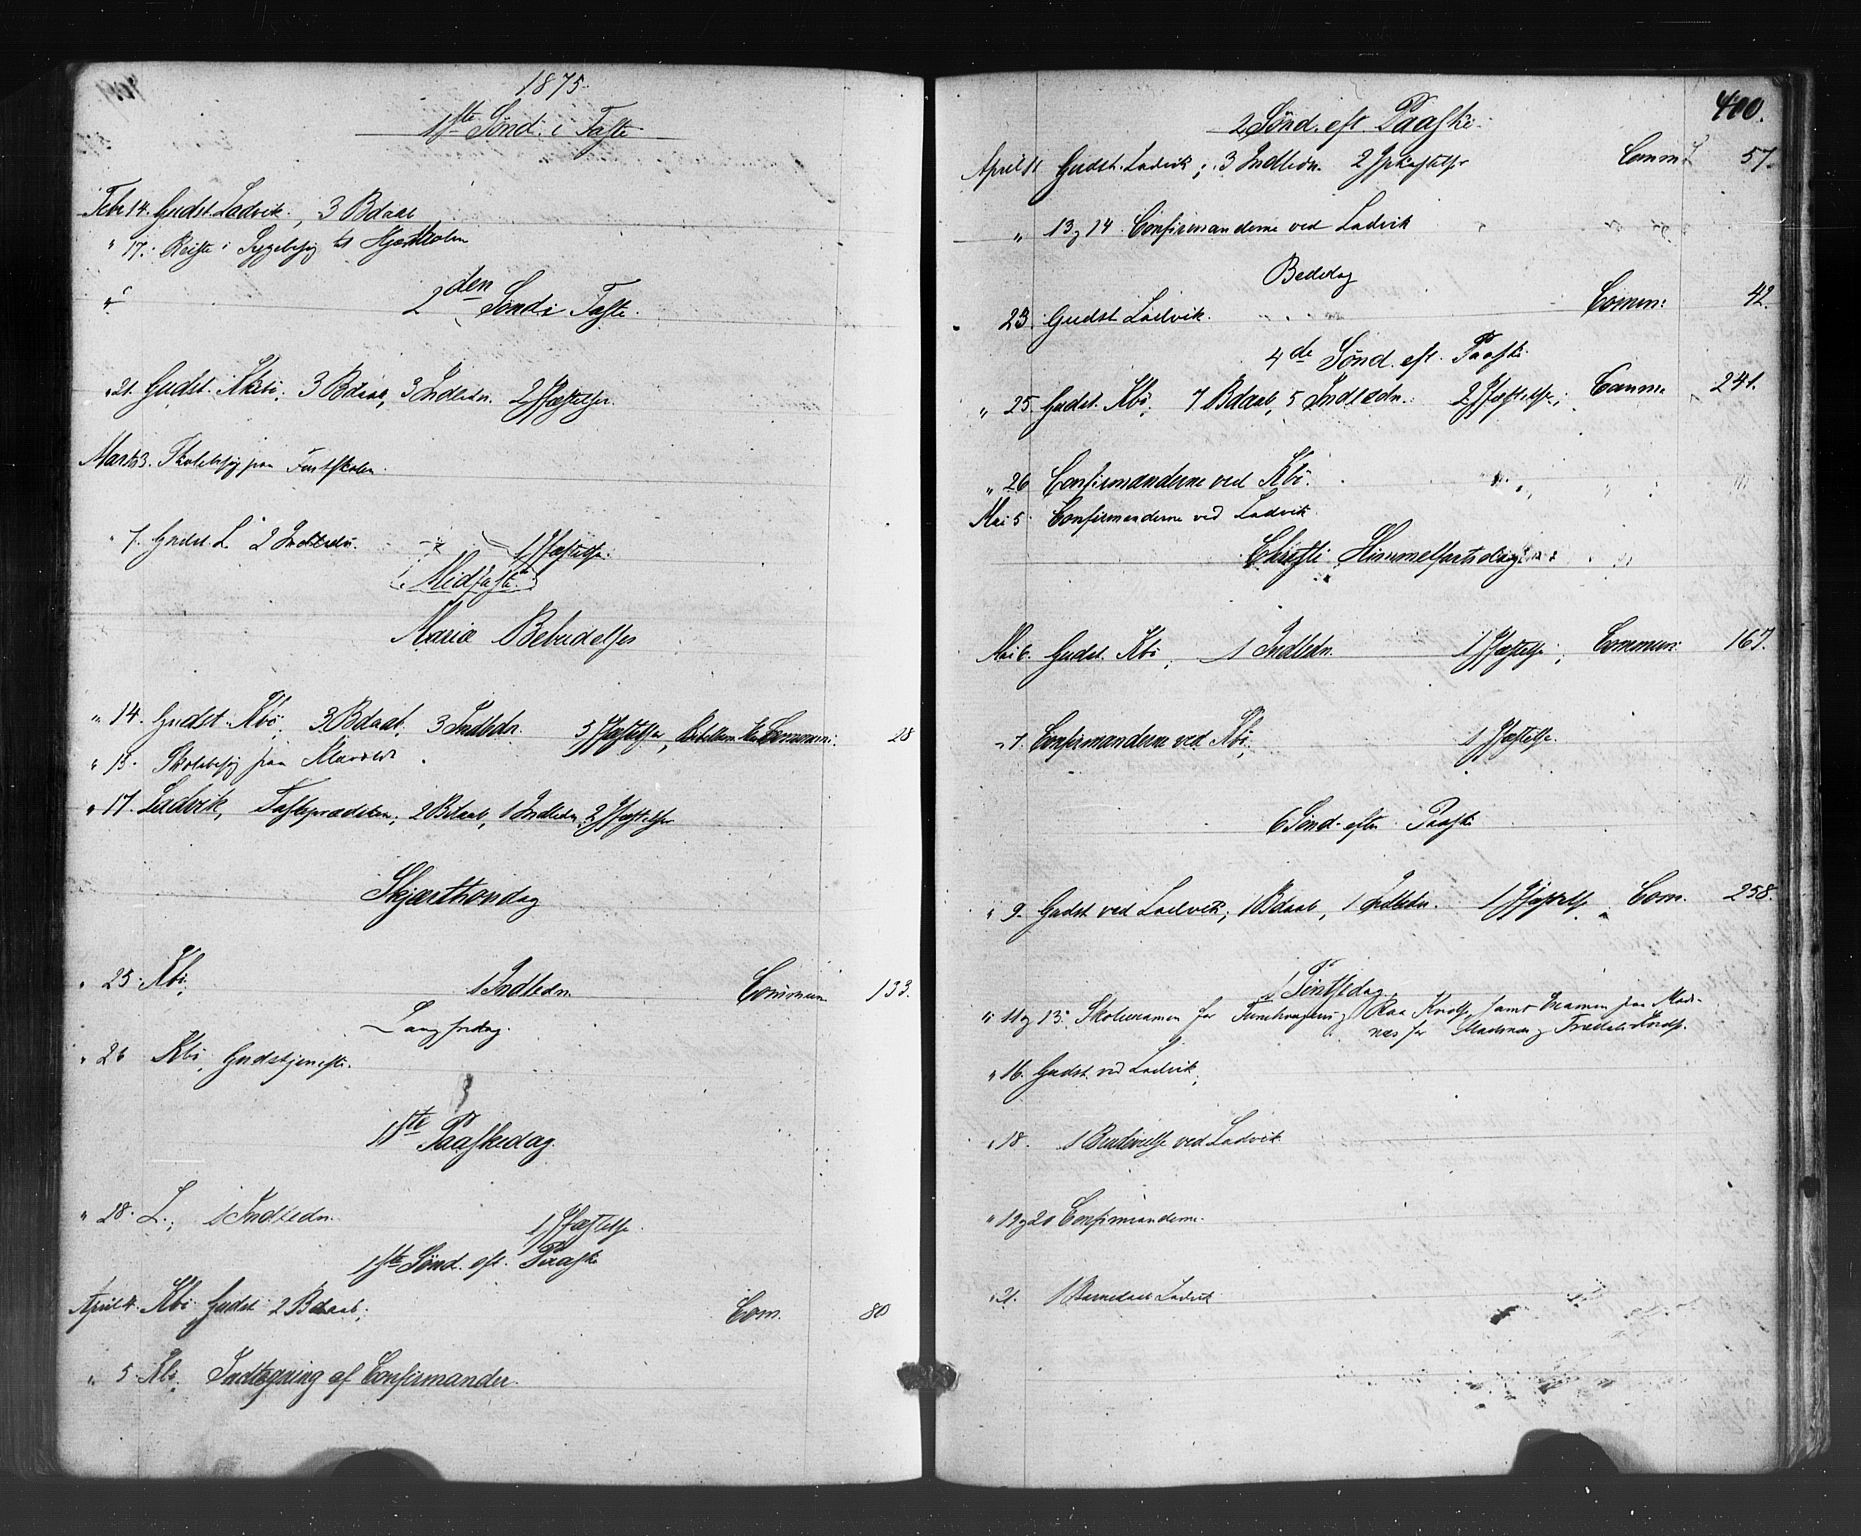 1875.
1ste Sønd. i Faste
Febr 14. Gudst. Ladvik. , 3 Bdaab
" 17. Reiste i Sygebesøg til
2den Sønd i Faste.
" 21. Gudst. Kbø; 3 Bdaab, 3 Indledn. 2 Jfæstelser.
Marts 3. Skolebesøg paa
" 7. Gudst. L. 2 Indledn. 1 Jfæstelse.
Midfaste
Mariæ Bebudelse
" 14. Gudst. Kbø; 3 Bdaab, 3 Indledn. 5 Jfæstelser, Commun: 28
" 15. Skolebesøg paa
" 17. Ladvik, Fasteprædiken; 2 Bdaab, 1 Indledn. 2 Jfæstelser
Skjærthorsdag
" 25. Kbø; 1 Indledn. Commun 133.
Langfredag.
" 26 Kbø, Gudstjeneste.
1ste Paaskedag.
" 28. L.; 1 Indledn. 1 Jfæstelse.
1ste Sønd. eft. Paaske
April 4. Kbø Gudst 2 Bdaab; Com. 80
" 5 Kbø; Indtegning af Confirmander.
400.
2 Sønd. eft Paaske.
April 11 Gudst. Ladvik; 3 Indledn. 2 Jfæstelser Comm. 57.
" 13 og 14. Confirmanderne ved Ladvik
Bededag
23. Gudst Ladvik. Comm: 42.
4de Sønd. eft. Paaske.
" 25 Gudst. Kbø; 7 Bdaab, 5 Indledn. 2 Jfæstelse; Comm. 241.
" 26 Confirmanderne ved Kbø.
Mai 5. Confirmanderne ved Ladvik.
Christi Himmelfartsdag
Mai 6. Gudst. Kbø; 1 Indledn. 1 Jfæstelse; Commun: 167.
" 7. Confirmanderne ved Kbø; 1 Jfæstelse.
6 Sønd. efter Paaske
" 9. Gudst ved Ladvik; 1 Bdaab, 1 Indledn. 1 Jfæstelse Com. 258.
1 Pintsedag.
" 11 og 13. Skoleexamen for og Kreds, samt Examen paa
for og Kreds.
" 16. Gudst. ved Ladvik;
" 18. 1 ved Ladvik
" 19 og 20 Confirmanderne.
" 21. 1 Barnedaab Ladvik